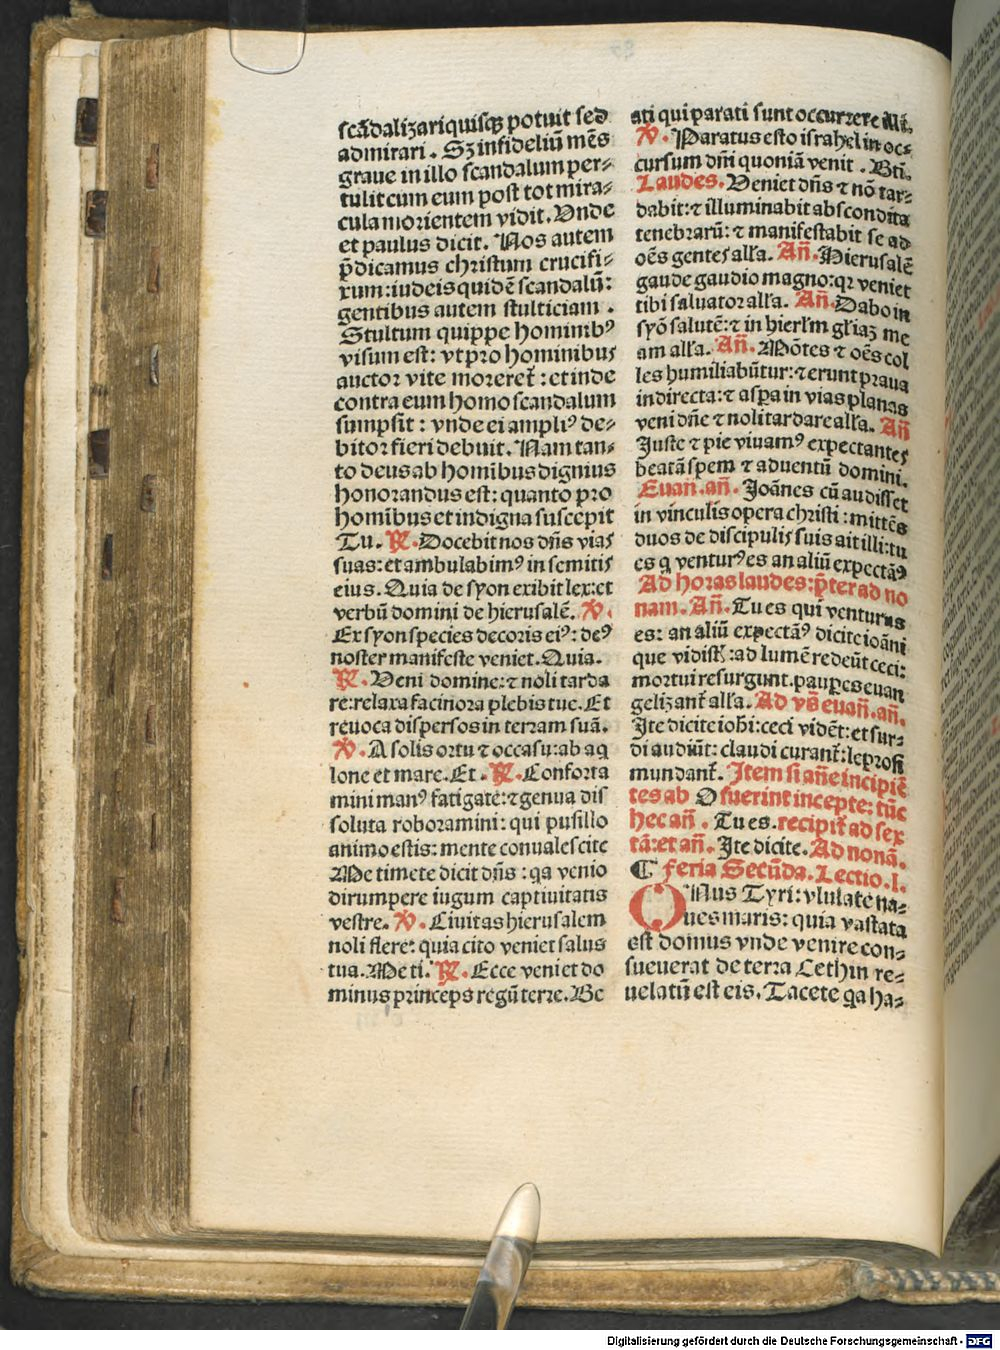 scādalizari quisq̄ potuit sed
admirari. Sz infideliū mēs
graue in illo scandalum per-
tulit cum eum post tot mira-
cula morientem vidit. Vnde
et paulus dicit. Nos autem
p̄dicamus christum crucifi-
xum: iudeis quidē scandalū:
gentibus autem stulticiam.
Stultum quippe hominibꝰ
visum est: vt pro hominibus
auctor vite moreret̄: et inde
contra eum homo scandalum
sumpsit: vnde ei ampliꝰ de-
bitor fieri debuit. Nam tan-
to deus ab homībus dignius
honorandus est: quanto pro
homībus et indigna suscepit
Tu. ℟. Docebit nos dn̄s vias
suas: et ambulabimꝰ in semitis
eius. Quia de syon exibit lex: et
verbū domini de hierusalē. ℣.
Ex syon species decoris eiꝰ: deꝰ
noster manifeste veniet. Quia.
℟. Veni domine: ⁊ noli tarda
re: relaxa facinora plebis tue. Et
reuoca dispersos in terram suā.
℣. A solis ortu ⁊ occasu: ab aq̄
lone et mare. Et. ℟. Conforta
mini manꝰ fatigate: ⁊ genua dis
soluta roboramini: qui pusillo
animo estis: mente conualescite
Ne timete dicit dn̄s: qa venio
dirumpere iugum captiuitatis
vestre. ℣. Ciuitas hierusalem
noli flere: quia cito veniet salus
tua. Ne ti. ℟. Ecce veniet do
minus princeps regū terre. Be
ati qui parati sunt occurrere illi.
℣. Paratus esto israhel in oc-
cursum dn̄i quoniā venit. Btī.
Laudes. Veniet dn̄s ⁊ nō tar-
dabit: ⁊ illuminabit abscondita
tenebrarū: ⁊ manifestabit se ad
oēs gentes alľa. An̄. Hierusalē
gaude gaudio magno: qꝛ veniet
tibi saluator alľa. An̄. Dabo in
syō salutē: ⁊ in hierľm gľiaz me
am alľa. An̄. Mōtes ⁊ oēs col
les humiliabūtur: ⁊ erunt praua
in directa: ⁊ asp̄a in vias planas
veni dn̄e ⁊ noli tardare alľa. An̄
Juste ⁊ pie viuamꝰ expectantes
beatā spem ⁊ aduentū domini.
Euan̄. an̄. Joānes cū audisset
in vinculis opera christi: mittēs
duos de discipulis suis ait illi: tu
es q venturꝰ es an aliū expectāꝰ
Ad horas laudes: p̄ter ad no
nam. An̄. Tu es qui venturus
es: an aliū expectāꝰ dicite ioāni
que vidist̄: ad lumē redeūt ceci:
mortui resurgunt. paup̄es euan
gelizant̄ alľa. Ad vs̄ euan̄. an̄.
Jte dicite iohi: ceci vidēt: et sur-
di audiūt: claudi curant̄: leprosi
mundant̄. Jtem si an̄e incipiē
tes ab O fuerint incepte: tūc
hec an̄. Tu es. recipit̄ ad sex
tā: et an̄. Jte dicite. Ad nonā.
¶ Feria Secūda. Lectio. I.
ONus Tyri: vlulate na-
ues maris: quia vastata
est domus vnde venire con-
sueuerat de terra Cethin re-
uelatū est eis. Tacete qa ha-
Digitalisierung gefördert durch die Deutsche Forschungsgemeinschaft - DFG